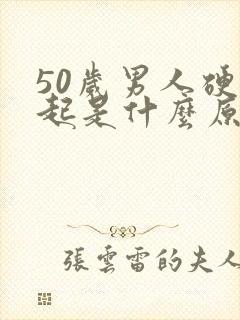 50歲男人硬
起是什麼原
張雲雷的夫人